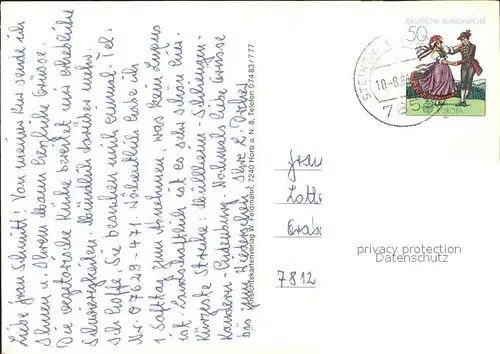 Liebe Frau Schmitt! Von meiner Kur sende ich
Ihnen u. Ihrem Mann herzliche Grüsse.
Die vegetarische Küche bereitet mir erhebliche
Schwierigkeiten. Mündlich darüber mehr.
Ich hoffe, Sie brauchen mich einmal. Tel.
Nr. 07629-471. Wöchentlich habe ich
1 Safttag zum Abnehmen, was kein Luxus
ist. Landschaftlich ist es sehr schön hier.
Kürzeste Strecke: Müllheim - Schliengen -
Kandern - . Nochmals liebe Grüsse
bis Wiedersehen Ihre R.
Ansichtskartenverlag W. Feldmann, 7240 Horb a. N. 8, Telefon 0 74 83 / 7 77
DEUTSCHE BUNDESPOST
50
EUROPA
STEINEN
10.-8.
7853
Frau
Lotte
7812
privacy protection
Datenschutz